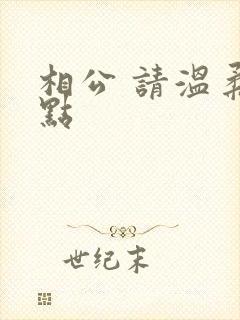 相公 請溫柔
點
世纪末